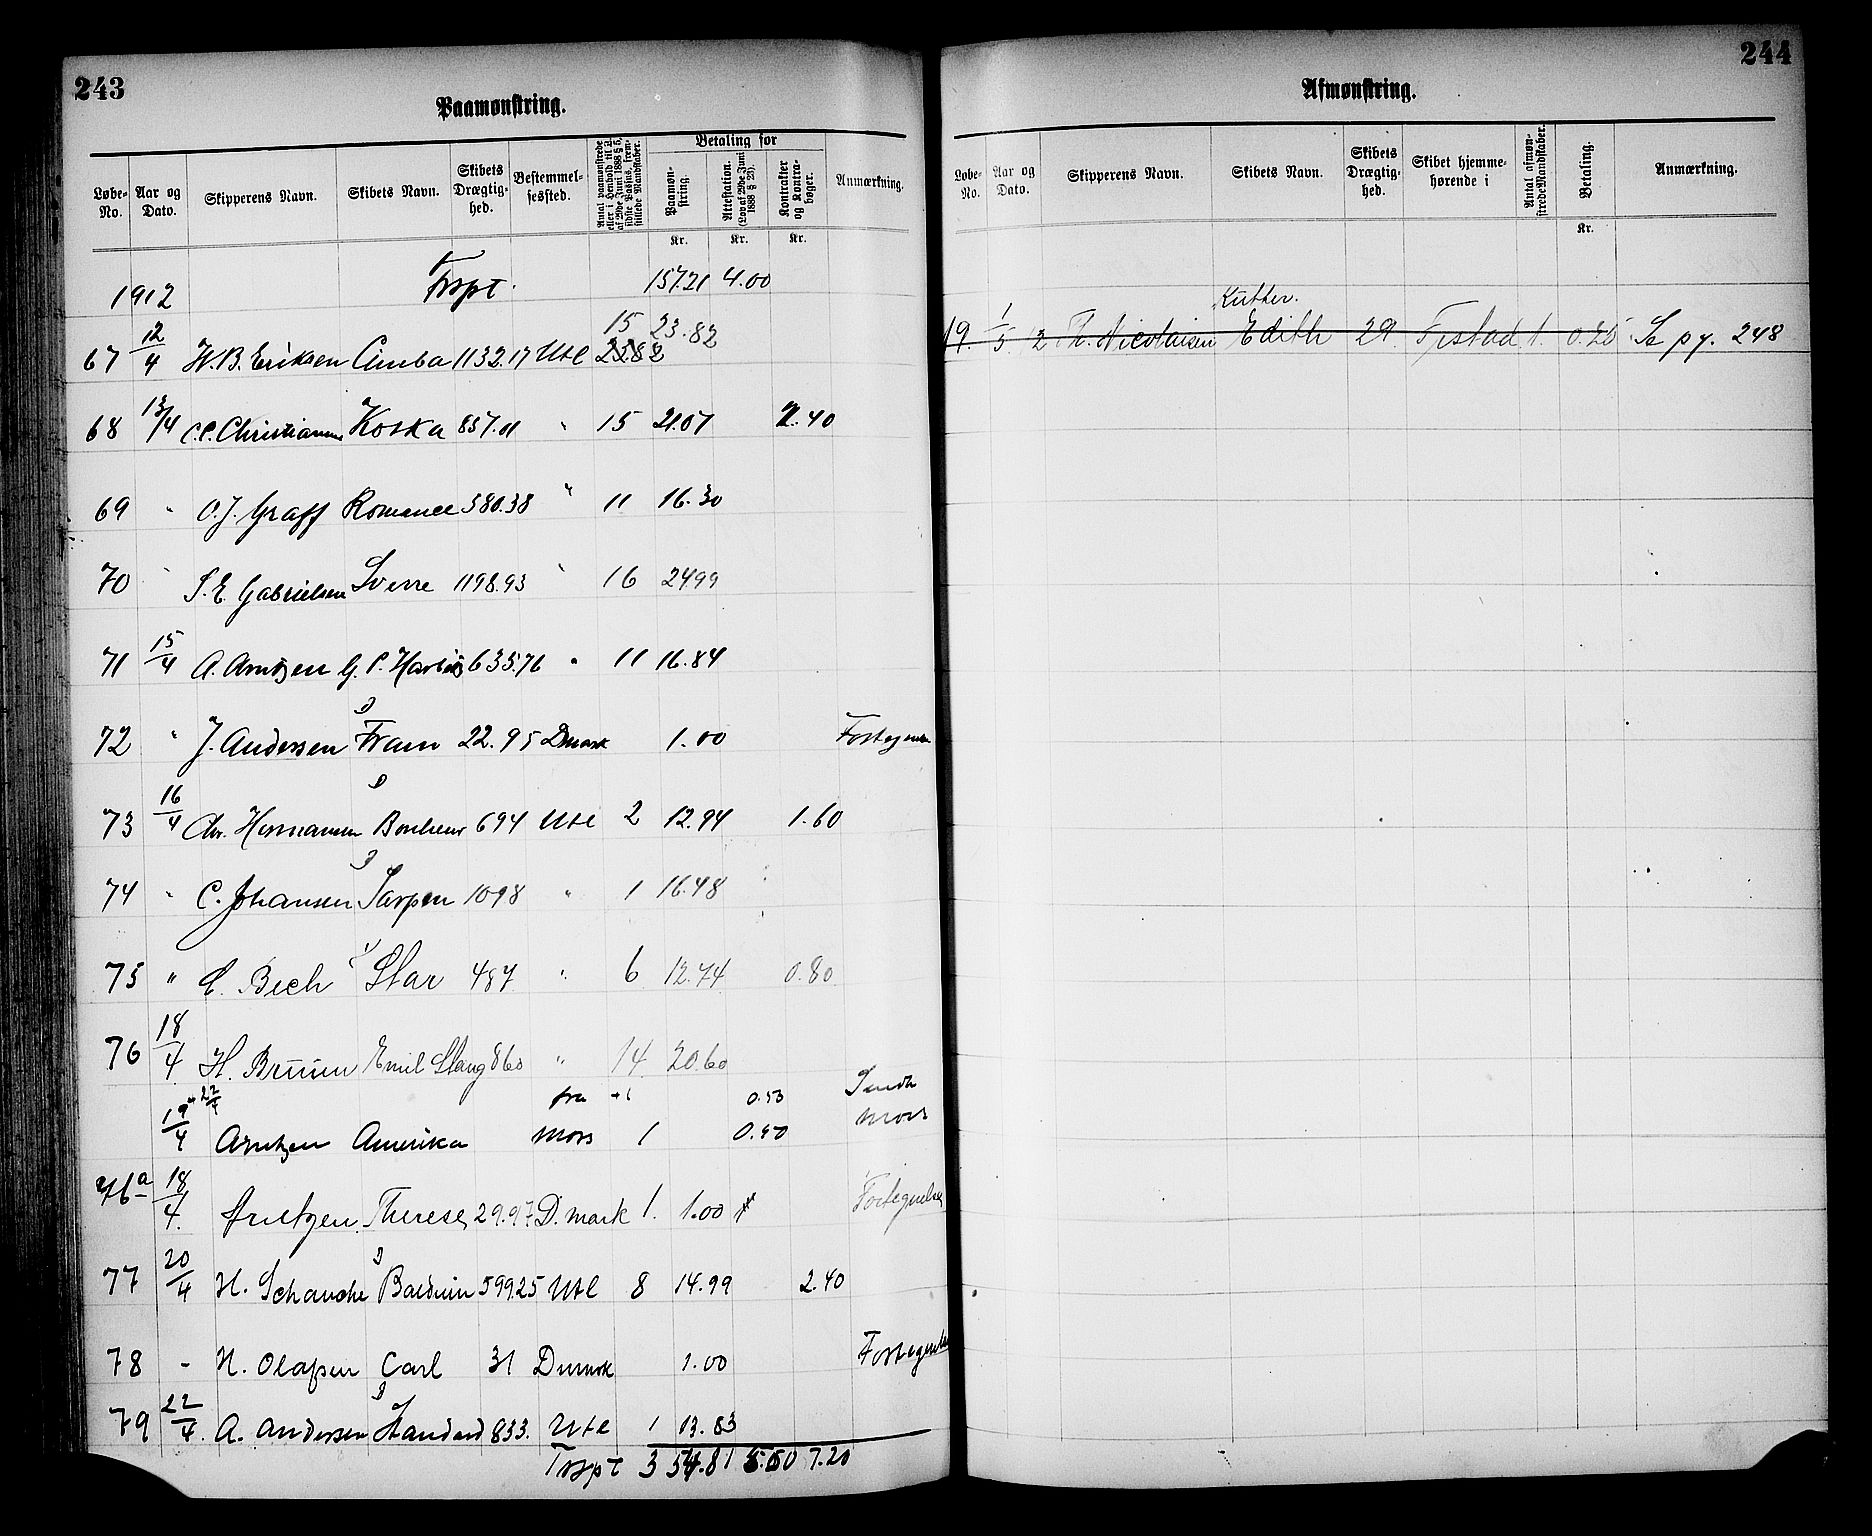 243
Paamønstring.
Løbe-No. Aar og Dato. Skipperens Navn. Skibets Navn. Skibets Drægtig-hed. Bestemmel-sessted. Antal paamønstrede eller i Henhold til L. af 29de Juni 1888 § 5, sidste Passus, frem-stillede Mandskaber. Betaling for Paamøn-string. Attestation. (Lov af 29de Juni 1888 § 23). Kontrakter og Kontra-bøger. Anmærkning.
Kr. Kr. Kr.
1912 Trspt. 157.21 4.00
67 12/4 W. B. Eriksen Cimba 1132.17 Utl 15 23.82
68 13/4 C.C. Christiansen Koska 857.01 " 15 21.07 2.40
69 " O. J. Graff Romance 580.38 " 11 16.30
70 " S. E. Gabrielsen Sverre 1198.93 " 16 24.99
71 15/4 A. Arntzen G. P. Harbitz 635.76 " 11 16.84
72 " J. Andersen Fram 22.95 Dmark 1.00 Fortegnelse
73 16/4 Chr. Hermansen Bonheur 694 Utl 2 12.94 1.60
74 " C. Johansen Sarpen 1098 " 1 16.48
75 " C. Bech Star 487 " 6 12.74 0.80
76 18/4 H. Bruun Emil Stang 860 " 14 20.60
22/4 fra +1 0.50
19/4 Arntzen Amerika Mors 1 0.50 Mors
76a 18/4. Arntzen Therese 29.97 D.mark 1. 1.00 Fortegnelse
77 20/4 H. Schanche Balduin 599.25 Utl 8 14.99 2.40
78 - N. Olafsen Carl 31 Dmrk 1.00 Fortegnelse
79 22/4. A. Andersen Standard 833. Utl 1 13.83
Trspt 354.81 5.00 7.20
244
Afmønstring.
Løbe-No. Aar og Dato. Skipperens Navn. Skibets Navn. Skibets Drægtig-hed. Skibet hjemme-hørende i Antal afmøn-strede Mandskaber. Betaling. Anmærkning.
Kr.
Kutter.
19. 1/5 12 Th. Nicolaisen Edith 29. Fjstad 1. 0.25 Se pg. 248